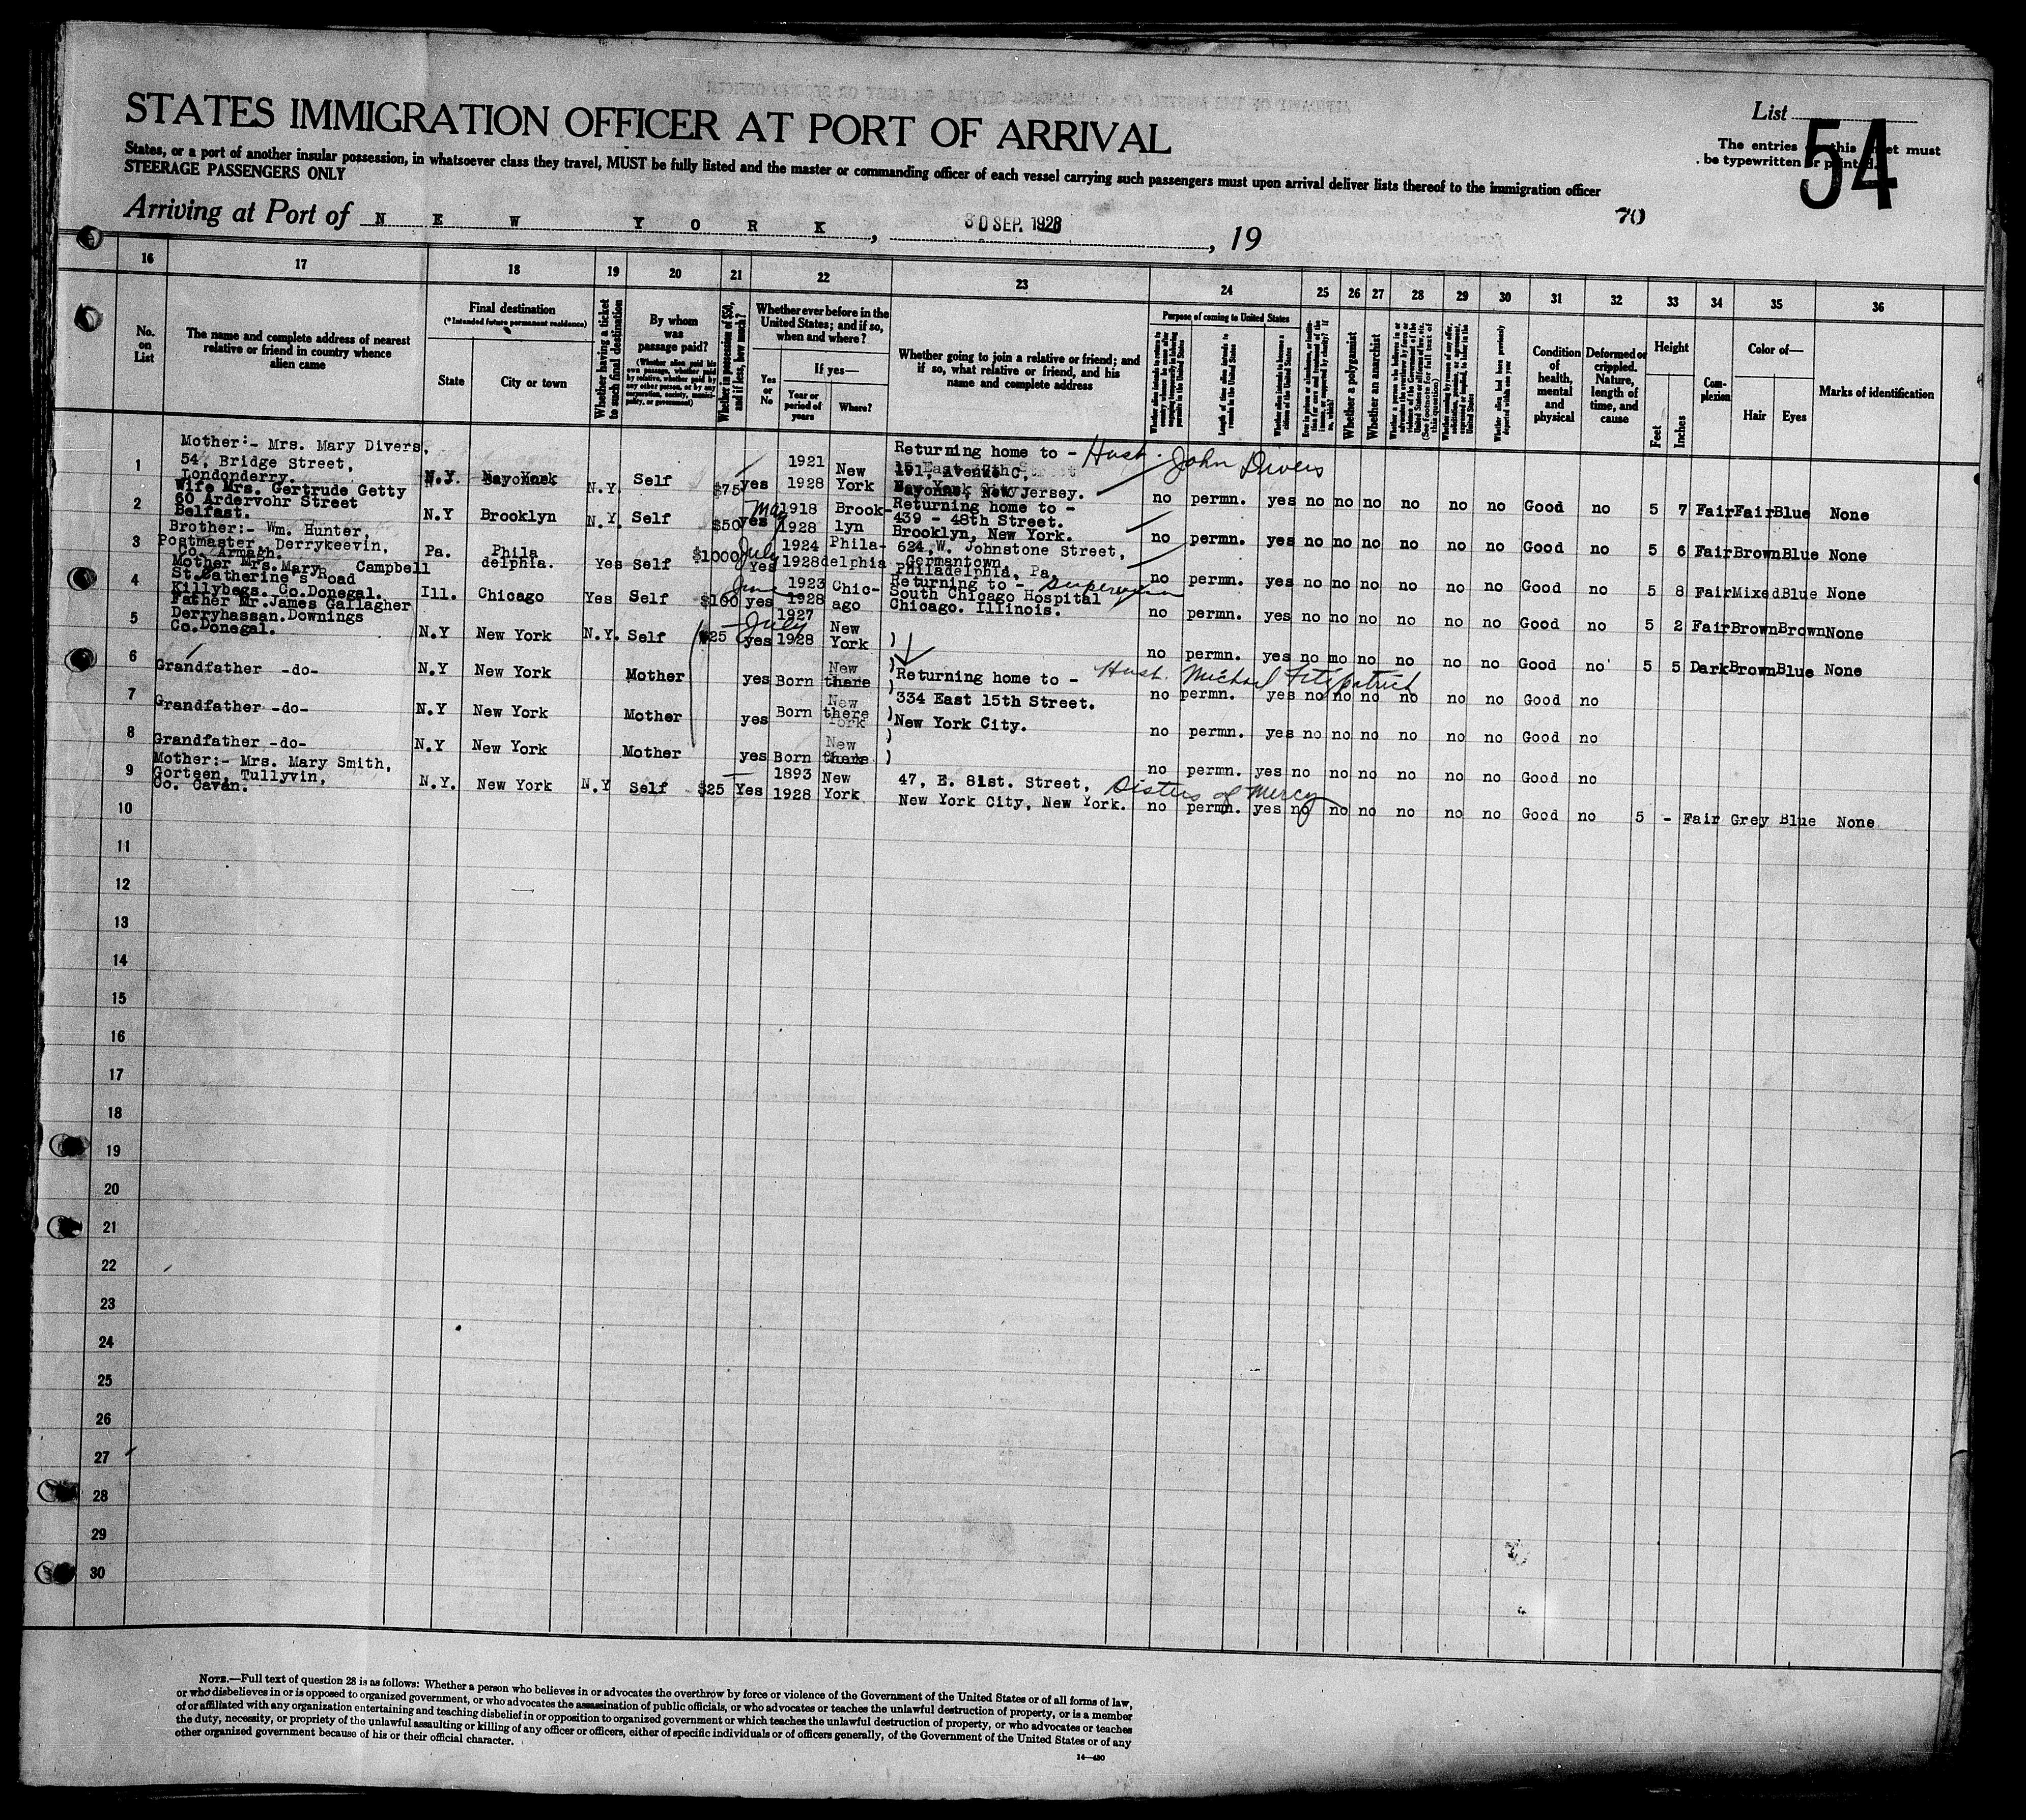 STATES IMMIGRATION OFFICER AT PORT OF ARRIVAL
List
54
The entries this sheet must
be typewritten or printed.
States, or a port of another insular possession, in whatsoever class they travel, MUST be fully listed and the master or commanding officer of each vessel carrying such passengers must upon arrival deliver lists thereof to the immigration officer
STEERAGE PASSENGERS ONLY
Arriving at Port of N E W Y O R K, 30 SEP. 1928, 19
70
16 17 18 19 20 21 22 23 24 25 26 27 28 29 30 31 32 33 34 35 36
No. on List
The name and complete address of nearest relative or friend in country whence alien came
Final destination
(*Intended future permanent residence)
State
City or town
Whether having a ticket to such final destination
By whom was passage paid?
(Whether alien paid his own passage, whether paid by relative, whether paid by any other person, or by any corporation, society, municipality, or government)
Whether in possession of $50, and if less, how much?
Whether ever before in the United States; and if so, when and where?
Yes or No
If yes—
Year or period of years
Where?
Whether going to join a relative or friend; and if so, what relative or friend, and his name and complete address
Purpose of coming to United States
Length of time alien intends to remain in the United States
Whether alien intends to become a citizen of the United States
Whether a polygamist
Whether an anarchist
Whether alien had been previously deported within one year
Condition of health, mental and physical
Deformed or crippled. Nature, length of time, and cause
Height
Feet
Inches
Complexion
Color of—
Hair
Eyes
Marks of identification
1
Mother:- Mrs. Mary Divers,
54, Bridge Street,
Londonderry.
N.Y. N.Y. Self $75 yes 1921 1928 New York
Returning home to - Husb. John Divers
Bayonne, New Jersey.
no permn. yes no no no no no no Good no 5 7 Fair Fair Blue None
2
Wife Mrs. Gertrude Getty
60 Ardervohr Street
Belfast.
N.Y Brooklyn N.Y. Self $50 yes May 1918 1928 Brooklyn
Returning home to -
439 - 48th Street.
Brooklyn, New York.
no permn. yes no no no no no no Good no 5 6 Fair Brown Blue None
3
Brother:- Wm. Hunter,
Postmaster, Derrykeevin,
Co. Armagh.
Pa. Phila delphia. Yes Self $1000 July Yes 1924 1928 Phila-delphia
624, W. Johnstone Street,
Germantown,
Philadelphia, Pa.
no permn. yes no no no no no no Good no 5 8 Fair Mixed Blue None
4
Mother Mrs. Mary Campbell
St.Catherine's Road
Killybegs. Co.Donegal.
Ill. Chicago Yes Self $100 June yes 1923 1928 Chic-ago
Returning to -
South Chicago Hospital
Chicago. Illinois.
no permn. yes no no no no no no Good no 5 2 Fair Brown Brown None
5
Father Mr.James Gallagher
Derryhassan.Downings
Co.Donegal.
N.Y New York N.Y. Self $25 July yes 1927 1928 New York )
no permn. yes no mo no no no no Good no 5 5 Dark Brown Blue None
6
Grandfather -do- N.Y New York Mother yes Born there )
Returning home to - Husb. Michael Fitzpatrick
no permn. yes no no no no no no Good no
7
Grandfather -do- N.Y New York Mother yes Born there )
334 East 15th Street.
New York City.
no permn. yes no no no no no no Good no
8
Grandfather -do- N.Y New York Mother yes Born there )
no permn. yes no no no no no no Good no
9
Mother:- Mrs. Mary Smith,
Gorteen, Tullyvin,
Co. Cavan.
N.Y. New York N.Y Self $25 Yes 1893 1928 New York
47, E. 81st. Street, Sisters of Mercy
New York City, New York.
no permn. yes no no no no no no Good no 5 - Fair Grey Blue None
10
11
12
13
14
15
16
17
18
19
20
21
22
23
24
25
26
27
28
29
30
NOTE.—Full text of question 28 is as follows: Whether a person who believes in or advocates the overthrow by force or violence of the Government of the United States or of all forms of law,
or who disbelieves in or is opposed to organized government, or who advocates the assassination of public officials, or who advocates or teaches the unlawful destruction of property, or is a member
of or affiliated with any organization entertaining and teaching disbelief in or opposition to organized government or which teaches the unlawful destruction of property, or who advocates or teaches
the duty, necessity, or propriety of the unlawful assaulting or killing of any officer or officers, either of specific individuals or of officers generally, of the Government of the United States or of any
other organized government because of his or their official character.
14—430